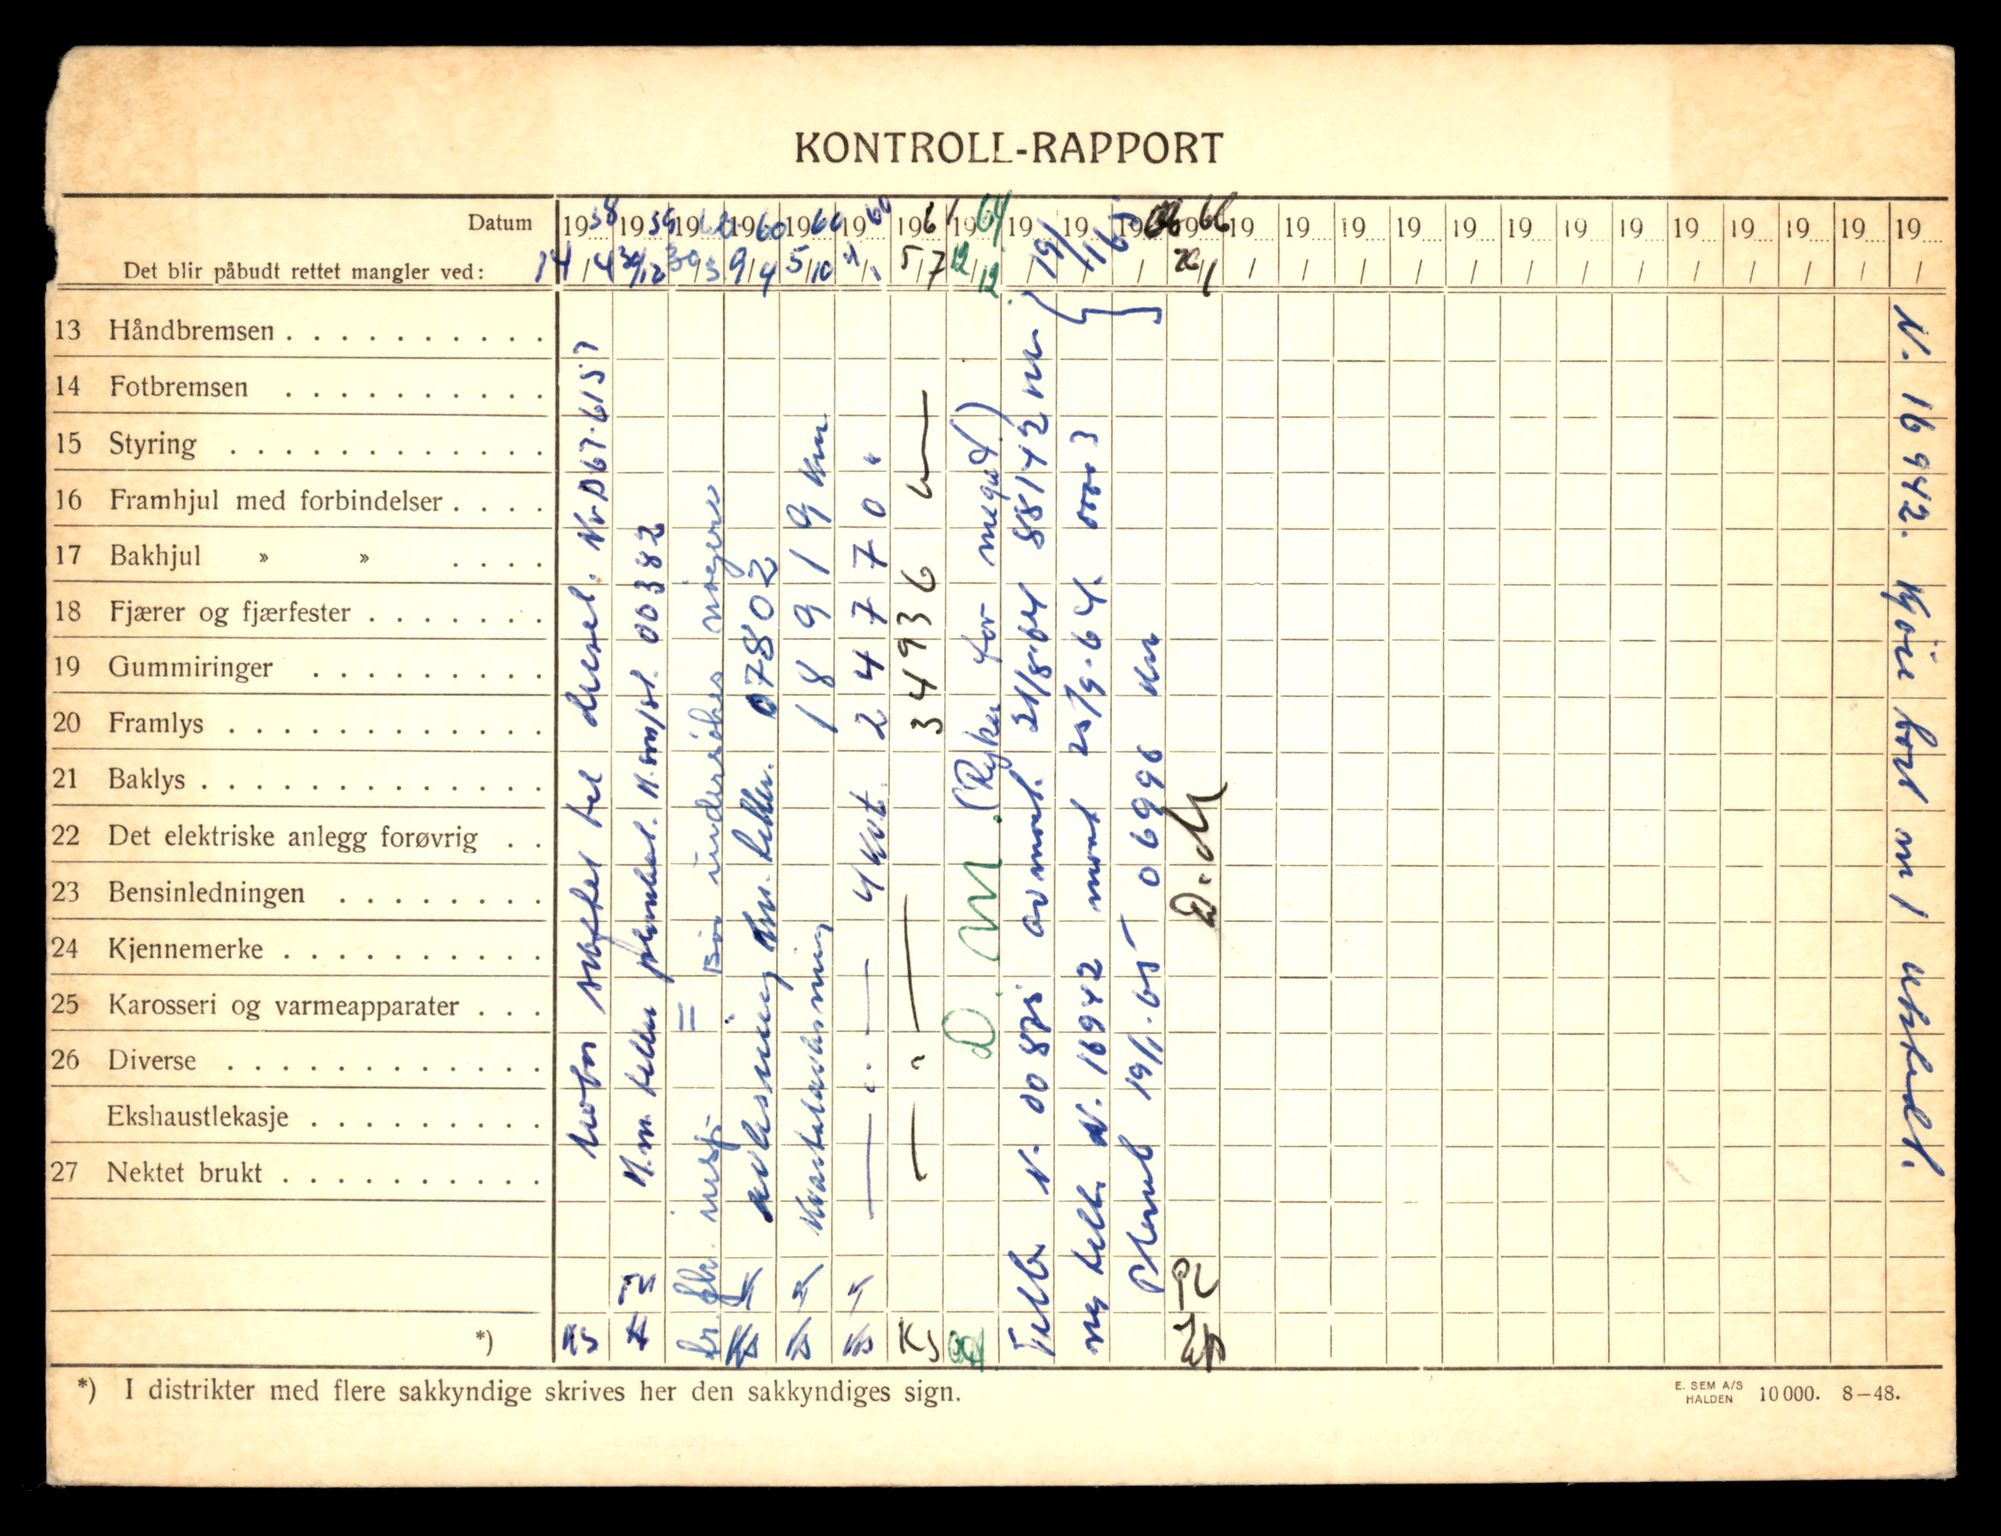 KONTROLL-RAPPORT
Datum 1958 1959 1960 1960 1960 1960 1961 1964 19 19 19 1966 19 19 19 19 19 19 19 19 19 19 19 19 19
Det blir påbudt rettet mangler ved: 14/4 30/12 30/3 9/4 5/10 5/7 12/12 20/1
13 Håndbremsen
14 Fotbremsen
15 Styring
16 Framhjul med forbindelser
17 Bakhjul » »
18 Fjærer og fjærfester
19 Gummiringer
20 Framlys
21 Baklys
22 Det elektriske anlegg forøvrig
23 Bensinledningen
24 Kjennemerke
25 Karosseri og varmeapparater
26 Diverse
Ekshaustlekasje
27 Nektet brukt
*)
Motor skiftet til diesel. Nr D67·6157
K.m. teller plombert. 00382
= Bør undersøkes nøyere
avlesning Km. teller. 07802
Kvartalavlesning 18919 Km
4 Kvt. 24770 "
34936
D. M. (Ryker for meget.)
Tellb. N. 00871 avmont. 21/8·64 88142 km
ny tell. N. 16942 mont 25/9·64. 00003
Plomb 19/1·65 06996 km
D.M
N. 16942. Kjörebort m/ utstedt.
KS KS KS KS KS
*) I distrikter med flere sakkyndige skrives her den sakkyndiges sign.
E. SEM A/S
HALDEN
10 000. 8—48.